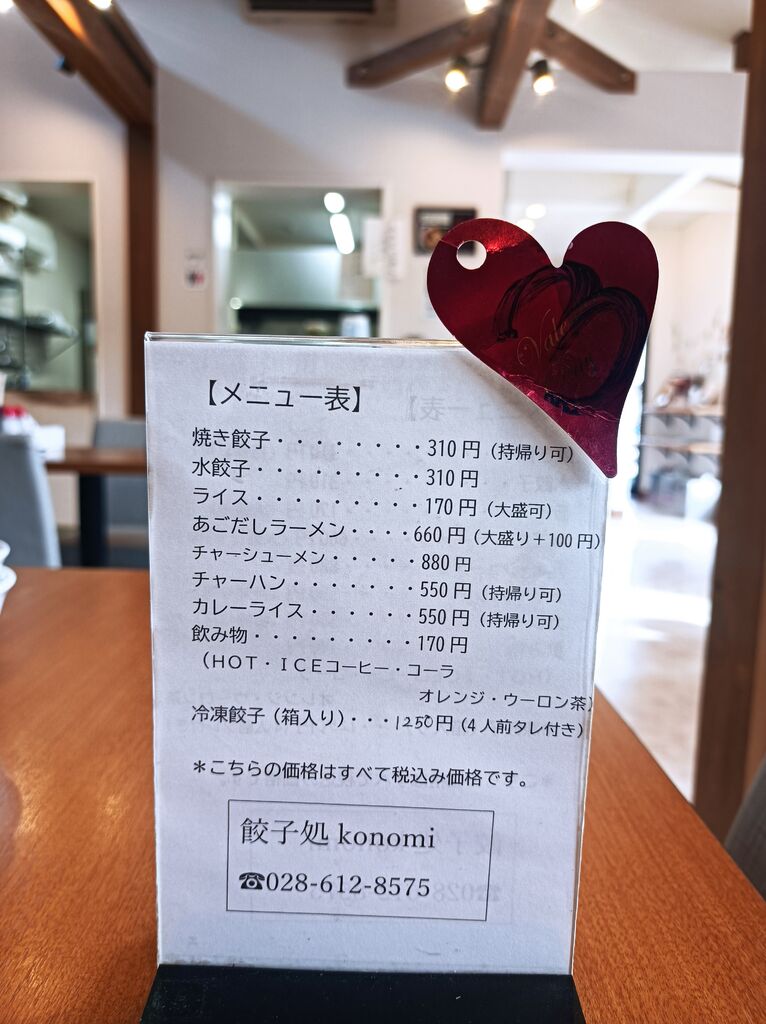 【メニュー表】
焼き餃子・・・・・・・・310円（持帰り可）
水餃子・・・・・・・・・310円
ライス・・・・・・・・・170円（大盛可）
あごだしラーメン・・・・660円（大盛り＋100円）
チャーシューメン・・・・・880円
チャーハン・・・・・・・550円（持帰り可）
カレーライス・・・・・・550円（持帰り可）
飲み物・・・・・・・・・170円
（ＨＯＴ・ＩＣＥコーヒー・コーラ
オレンジ・ウーロン茶）
冷凍餃子（箱入り）・・・1250円（4人前タレ付き）
＊こちらの価格はすべて税込み価格です。
餃子処 konomi
☎028-612-8575